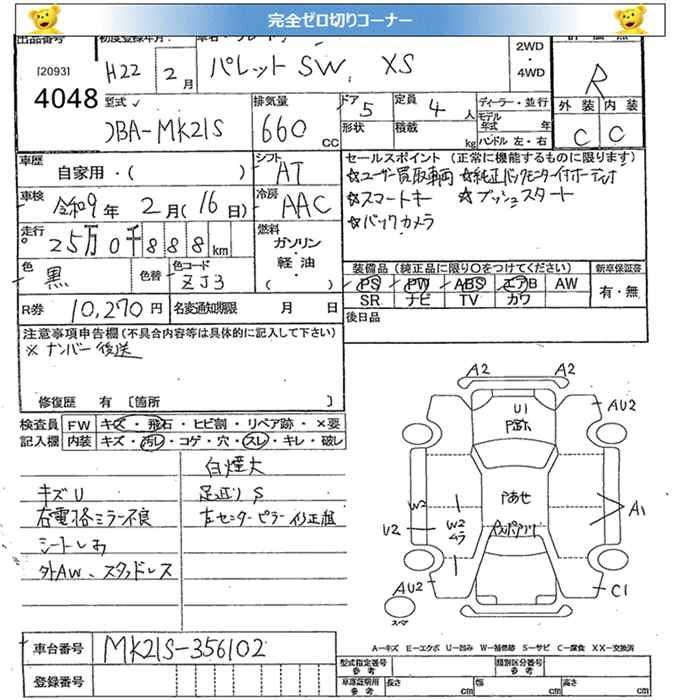 完全ゼロ切りコーナー
出品番号 初度登録年月
[2093] H22 2月 パレットSW XS 2WD ・ 4WD R
4048
型式 DBA-MK21S 排気量 660 cc ドア 5 定員 4人 ディーラー・並行 外装 内装
形状 積載 kg モデル年式 年 ハンドル 左・右 C C
車歴 自家用・( ) シフト AT セールスポイント (正常に機能するものに限ります)
☆ユーザー買取車両 ☆純正バックモニター付オーディオ
車検 令和9年 2月(16日) 冷房 AAC ☆スマートキー ☆プッシュスタート
☆バックカメラ
走行 25万0千888km 燃料 ガソリン・軽油 ( )
色 黒 色替 色コード ZJ3 装備品 (純正品に限り○をつけてください) 新車保証書
PS PW ABS エアB AW 有・無
R券 10,270円 名変通知期限 月 日 SR ナビ TV カワ
後日品
注意事項申告欄(不具合内容等は具体的に記入して下さい)
※ナンバー後送
修復歴 有 〔箇所 〕
検査員 FW キズ・飛石・ヒビ割・リペア跡・×要
記入欄 内装 キズ・汚レ・コゲ・穴・スレ・キレ・破レ
白煙大
キズU 足廻りS
右電格ミラー不良 左センターピラー修正歴
シートしみ
外AW、スタッドレス
A2 A2
U1 AU2
ルーフあせ
W2 W2 ムラ A1
U2
AU2 C1
スペア
車台番号 MK21S-356102
登録番号
A−キズ E−エクボ U−凹み W−補修跡 S−サビ C−腐食 XX−交換済
型式指定番号 参考 類別区分番号 参考
車庫証明用 参考 長さ cm 幅 cm 高さ cm